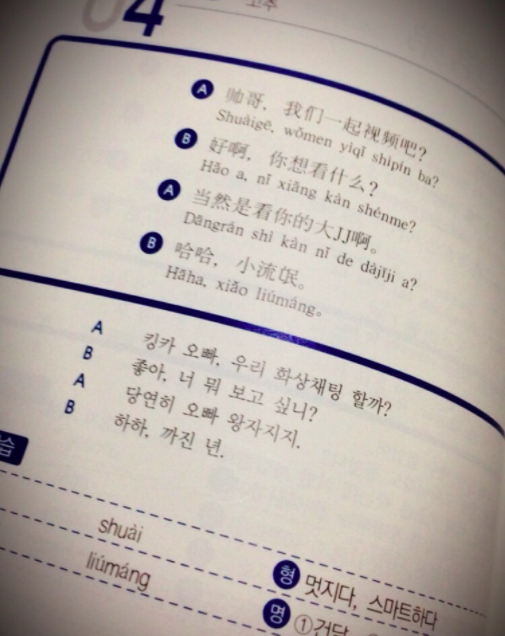 04
고추
A 帅哥，我们一起视频吧？
Shuàigē, wǒmen yìqǐ shìpín ba?
B 好啊，你想看什么？
Hǎo a, nǐ xiǎng kàn shénme?
A 当然是看你的大JJ啊。
Dāngrán shì kàn nǐ de dàjījī a?
B 哈哈，小流氓。
Hāha, xiǎo liúmáng。
A 킹카 오빠, 우리 화상채팅 할까?
B 좋아, 너 뭐 보고 싶니?
A 당연히 오빠 왕자지지.
B 하하, 까진 년.
습
shuài 형 멋지다, 스마트하다
liúmáng 명 ①건달